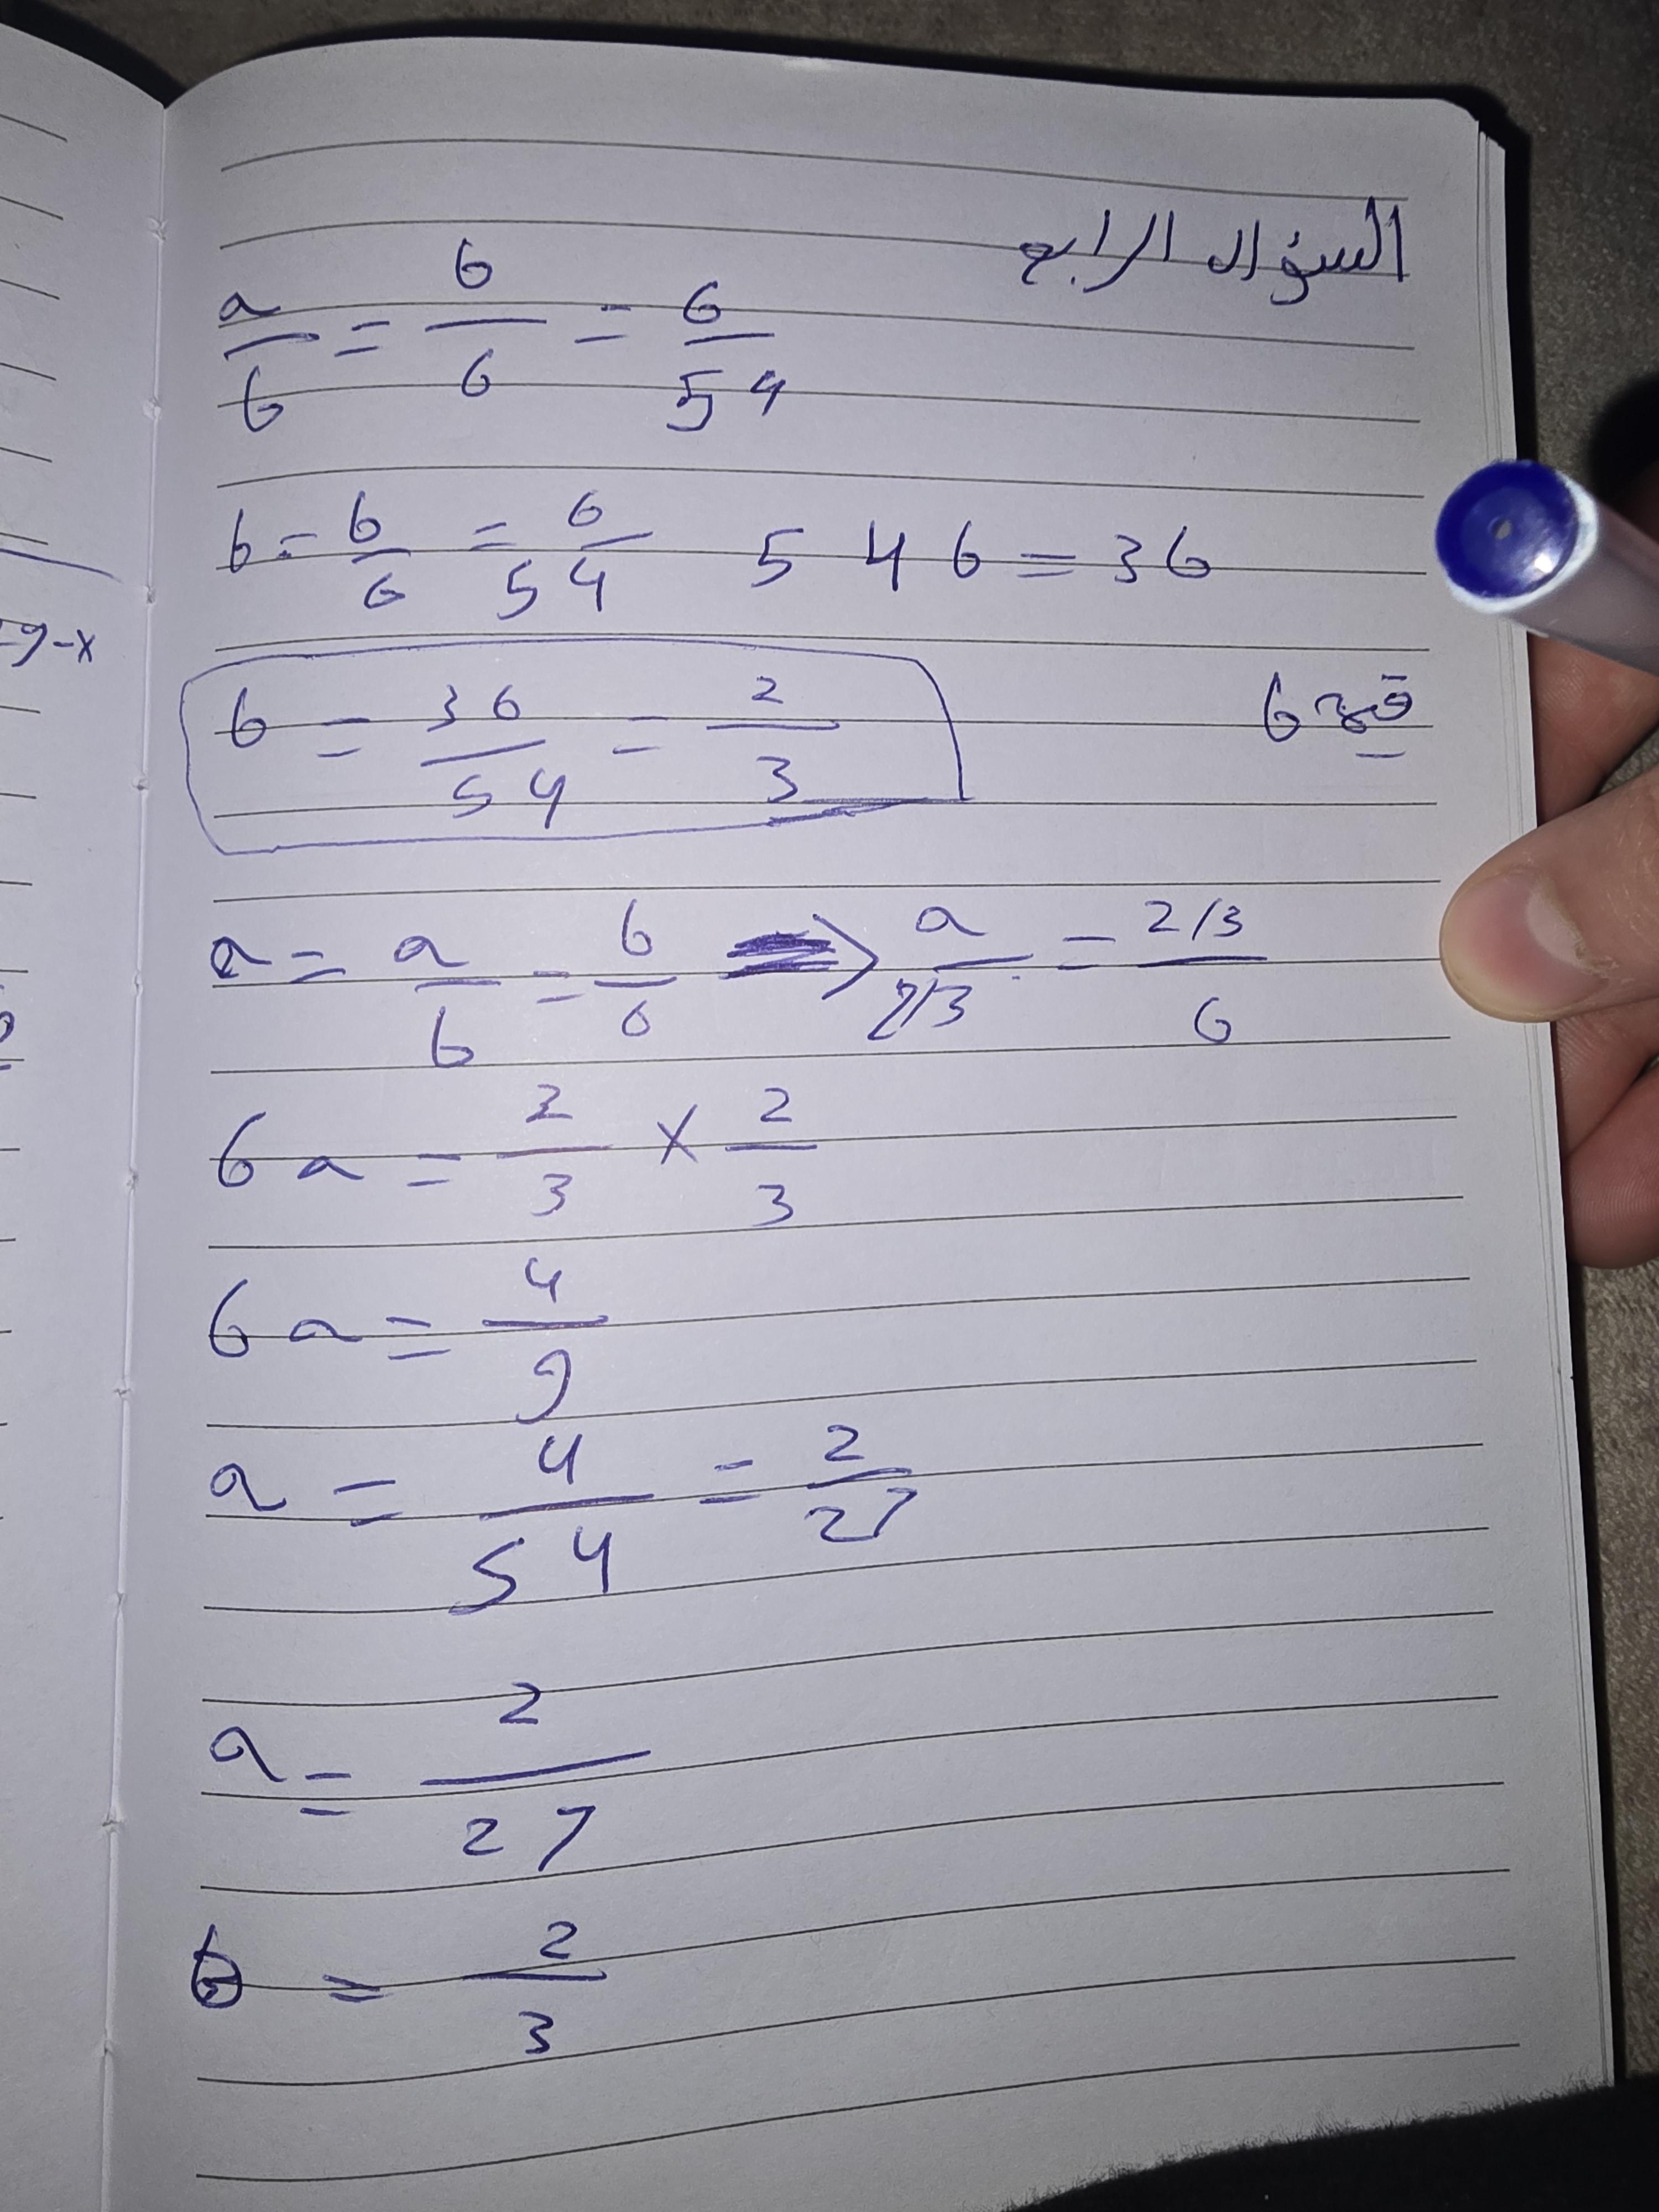 السؤال الرابع
a/b = b/6 = 6/54
b = b/6 = 6/54 54b = 36
b = 36/54 = 2/3 قيمة b
a = a/b = b/6 => a/2/3 = 2/3/6
6a = 2/3 × 2/3
6a = 4/9
a = 4/54 = 2/27
a = 2/27
b = 2/3